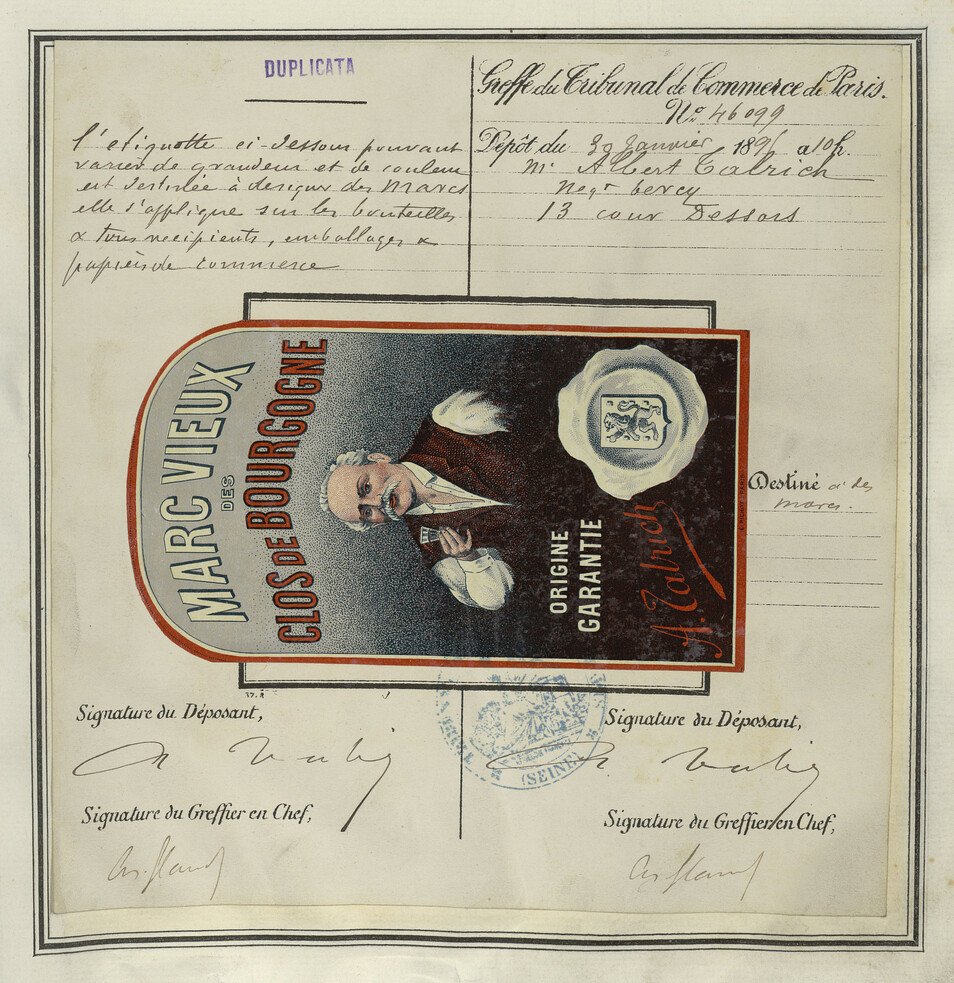 DUPLICATA
l'etiquette ci-dessous pouvant
varier de grandeur et de couleur
est destinée à designer des Marcs
elle s'applique sur les bouteilles
& tous recipients, emballages &
papiers de commerce
Greffe du Tribunal de Commerce de Paris.
No 46099
Dépôt du Janvier 1896 a 10h.
Mr Albert Talrich
negt bercy
13 cour Dessors
MARC VIEUX
DES
CLOS DE BOURGOGNE
ORIGINE
GARANTIE
A. Talrich
Destiné à des
marcs.
Signature du Déposant,
Signature du Greffier en Chef,
Signature du Déposant,
Signature du Greffier en Chef,
(SEINE)